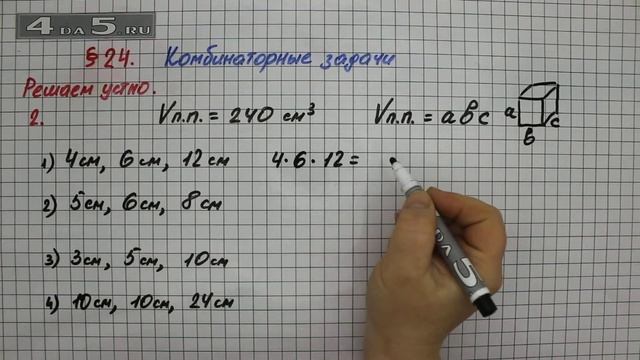 4 DA 5.RU
§ 24. Комбинаторные задачи
Решаем устно.
2. Vп.п. = 240 см³ Vп.п. = a b c
a b c
1) 4 см, 6 см, 12 см 4 · 6 · 12 =
2) 5 см, 6 см, 8 см
3) 3 см, 5 см, 10 см
4) 10 см, 10 см, 24 см
4 DA 5